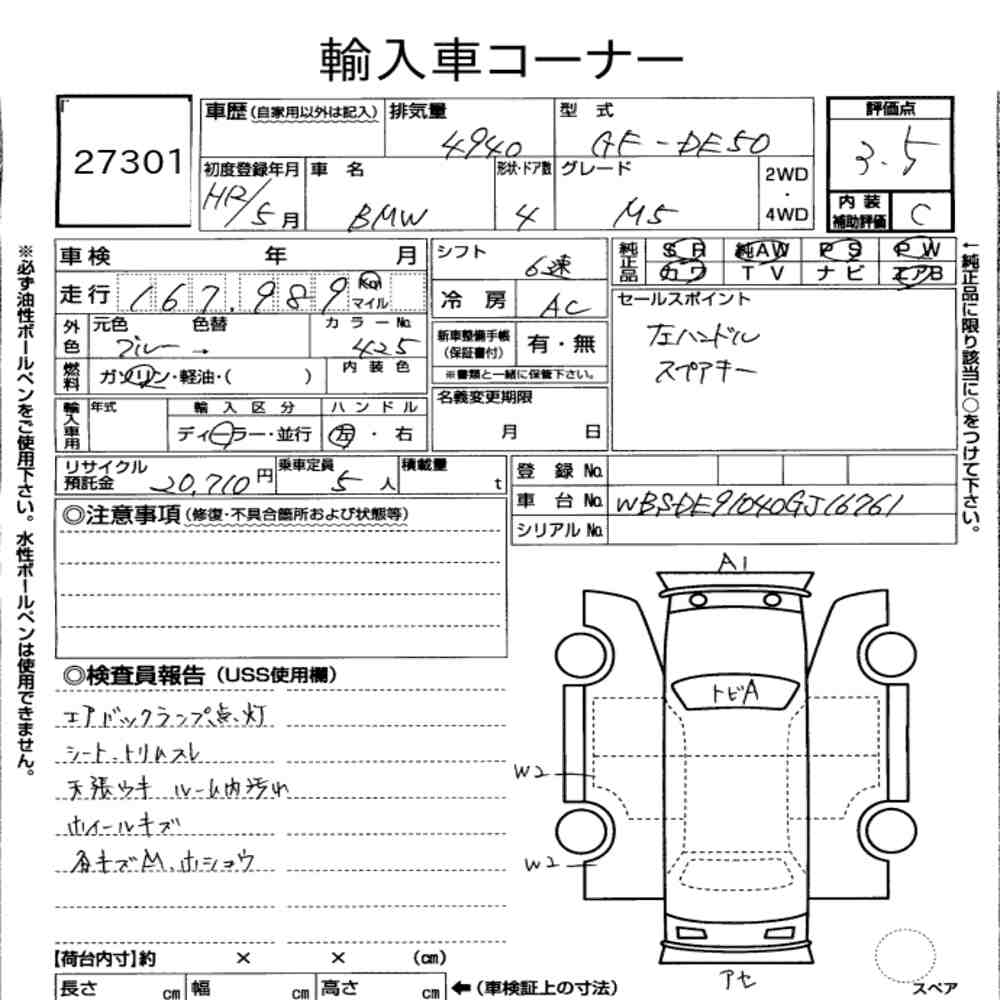 輸入車コーナー
27301
車歴(自家用以外は記入) 排気量 型 式 評価点
4940 GF-DE50 3.5
初度登録年月 車 名 形状・ドア数 グレード 2WD・4WD 内装補助評価
5月 BMW 4 M5 C
※必ず油性ボールペンをご使用下さい。水性ボールペンは使用できません。
車検 年 月
シフト 6速
純正品 SR 純AW PS PW
カワ TV ナビ エアB
走行 167.989 Km マイル
冷 房 AC
外色 元色 色替 カラーNo.
ブルー → 425
新車整備手帳(保証書付) 有・無
※書類と一緒に保管下さい。
燃料 ガソリン・軽油・( ) 内装色
セールスポイント
左ハンドル
スペアキー
←純正品に限り該当に○をつけて下さい。
名義変更期限
月 日
輸入車用 年式 輸入区分 ハンドル
ディーラー・並行 左・右
リサイクル預託金 20,710円 乗車定員 5人 積載量 t
登 録 No.
車 台 No. WBSDE91040GJ16761
シリアル No.
◎注意事項(修復・不具合箇所および状態等)
◎検査員報告(USS使用欄)
エアバックランプ点灯
シート、トリムスレ
天張ウキ ルーム内汚れ
ホイールキズ
各キズM、ホショウ
A1
トビA
W2
W2
アセ
スペア
【荷台内寸】約 × × (cm)
長さ cm 幅 cm 高さ cm ←(車検証上の寸法)